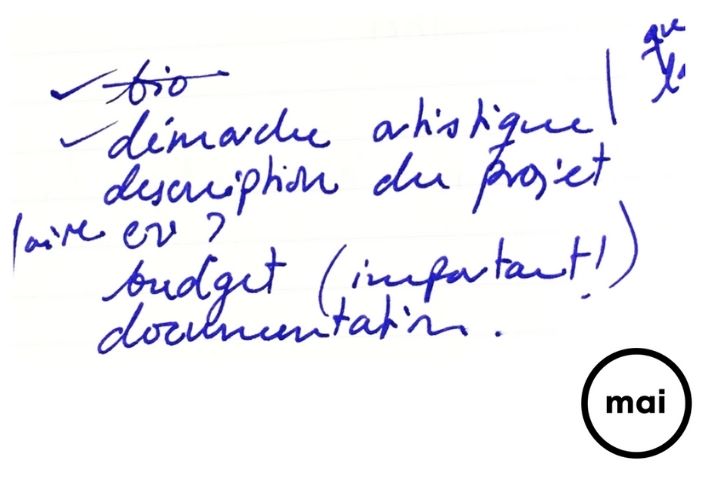 que
✓ bio
✓ démarche artistique
description du projet
faire CV ?
budget (important!)
documentation.
mai